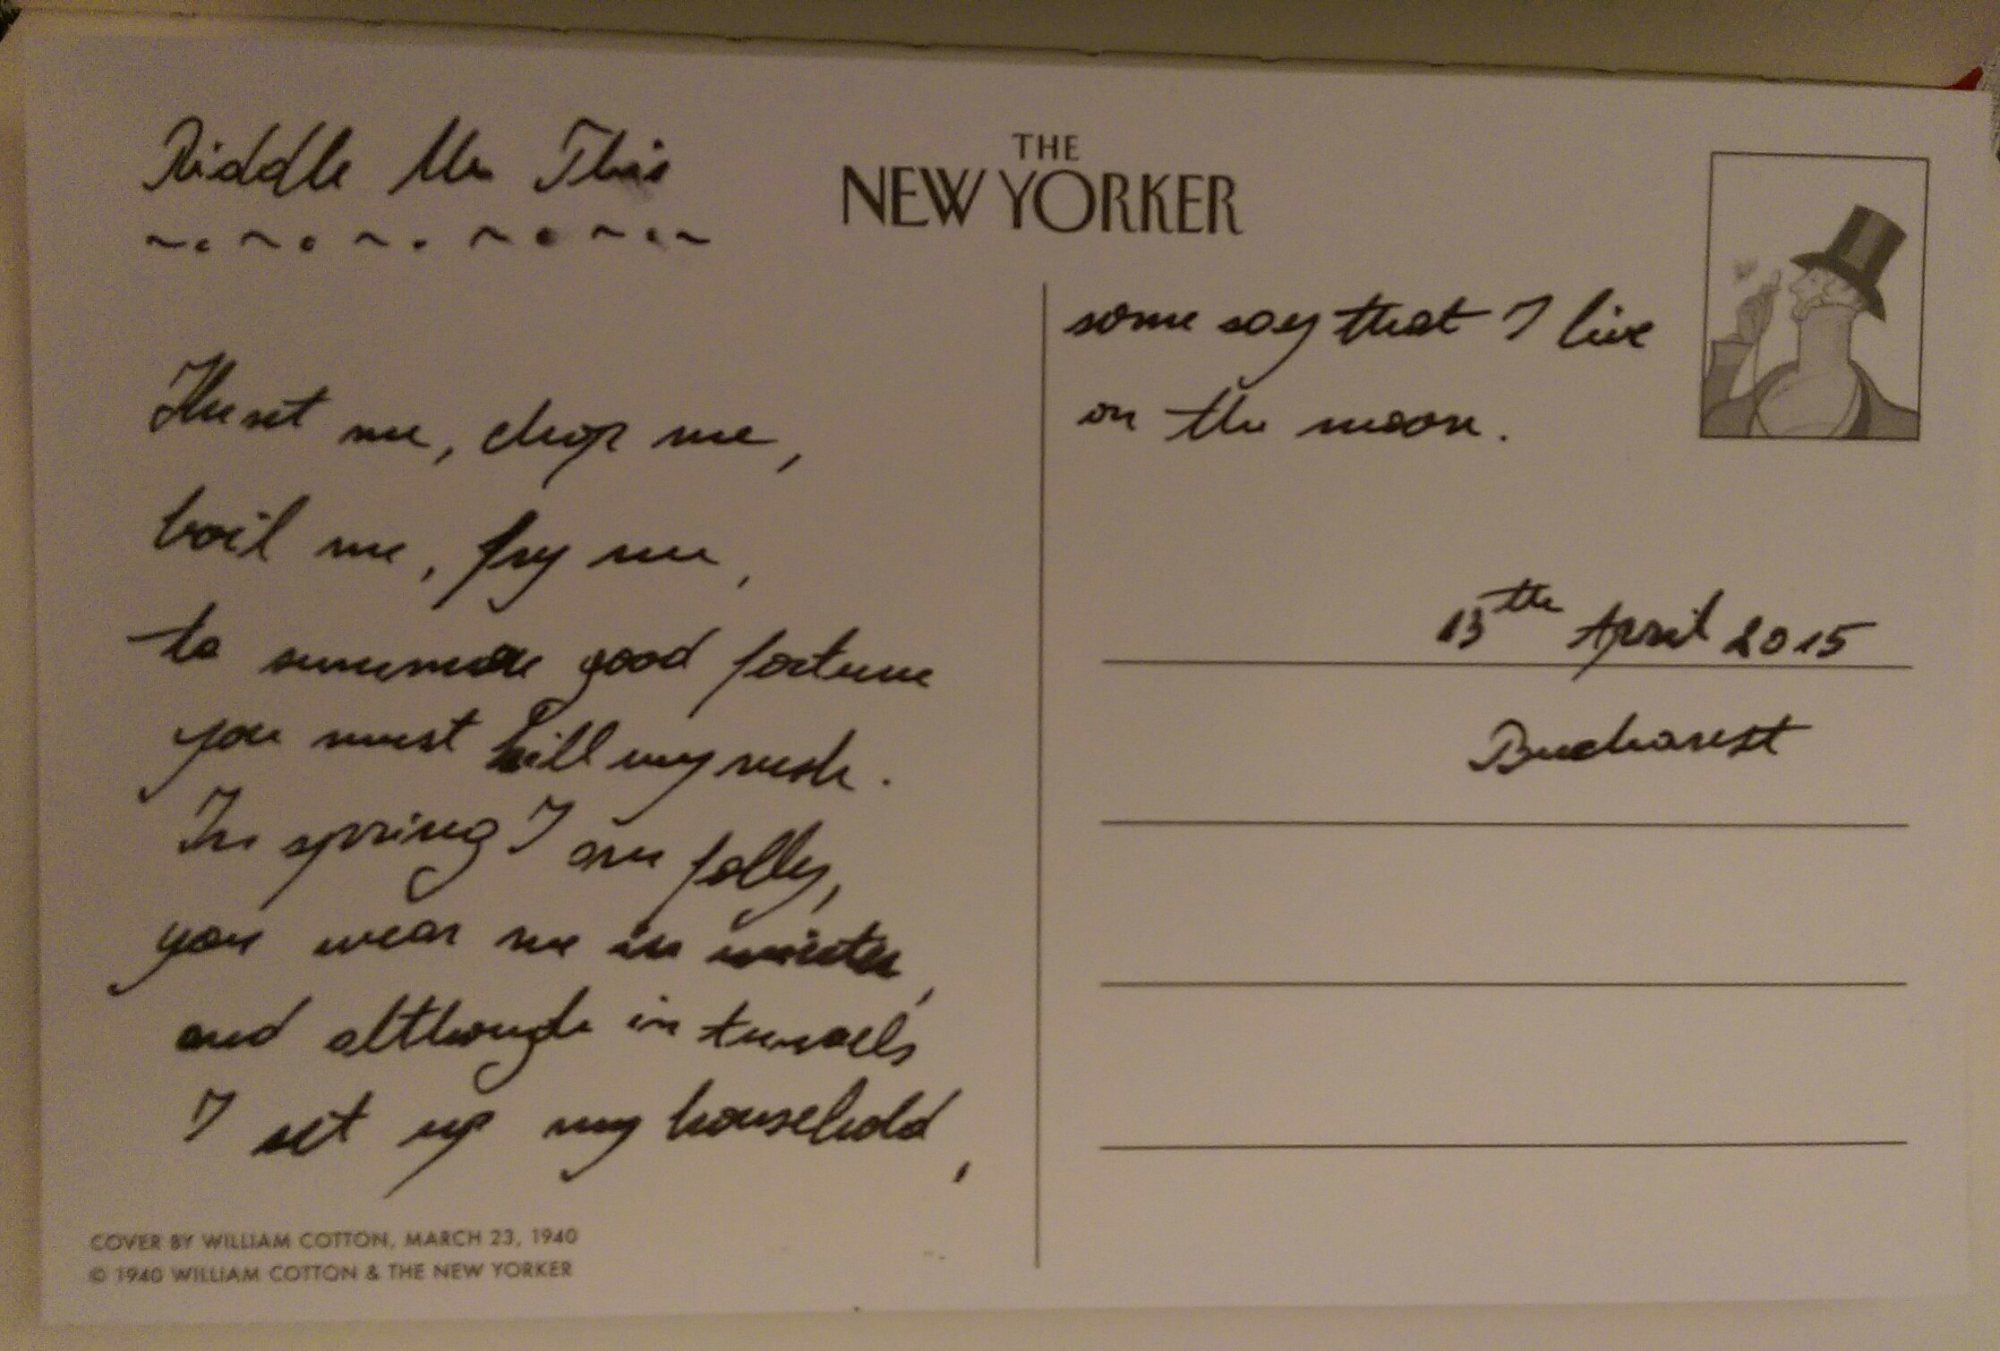 Riddle Me This
THE
NEW YORKER
Hunt me, chop me,
boil me, fry me,
to summon good fortune
you must kill my rush.
In spring I am folly,
you wear me in winter,
and although in tunnels
I set up my household,
some say that I live
on the moon.
13th April 2015
Bucharest
COVER BY WILLIAM COTTON, MARCH 23, 1940
© 1940 WILLIAM COTTON & THE NEW YORKER